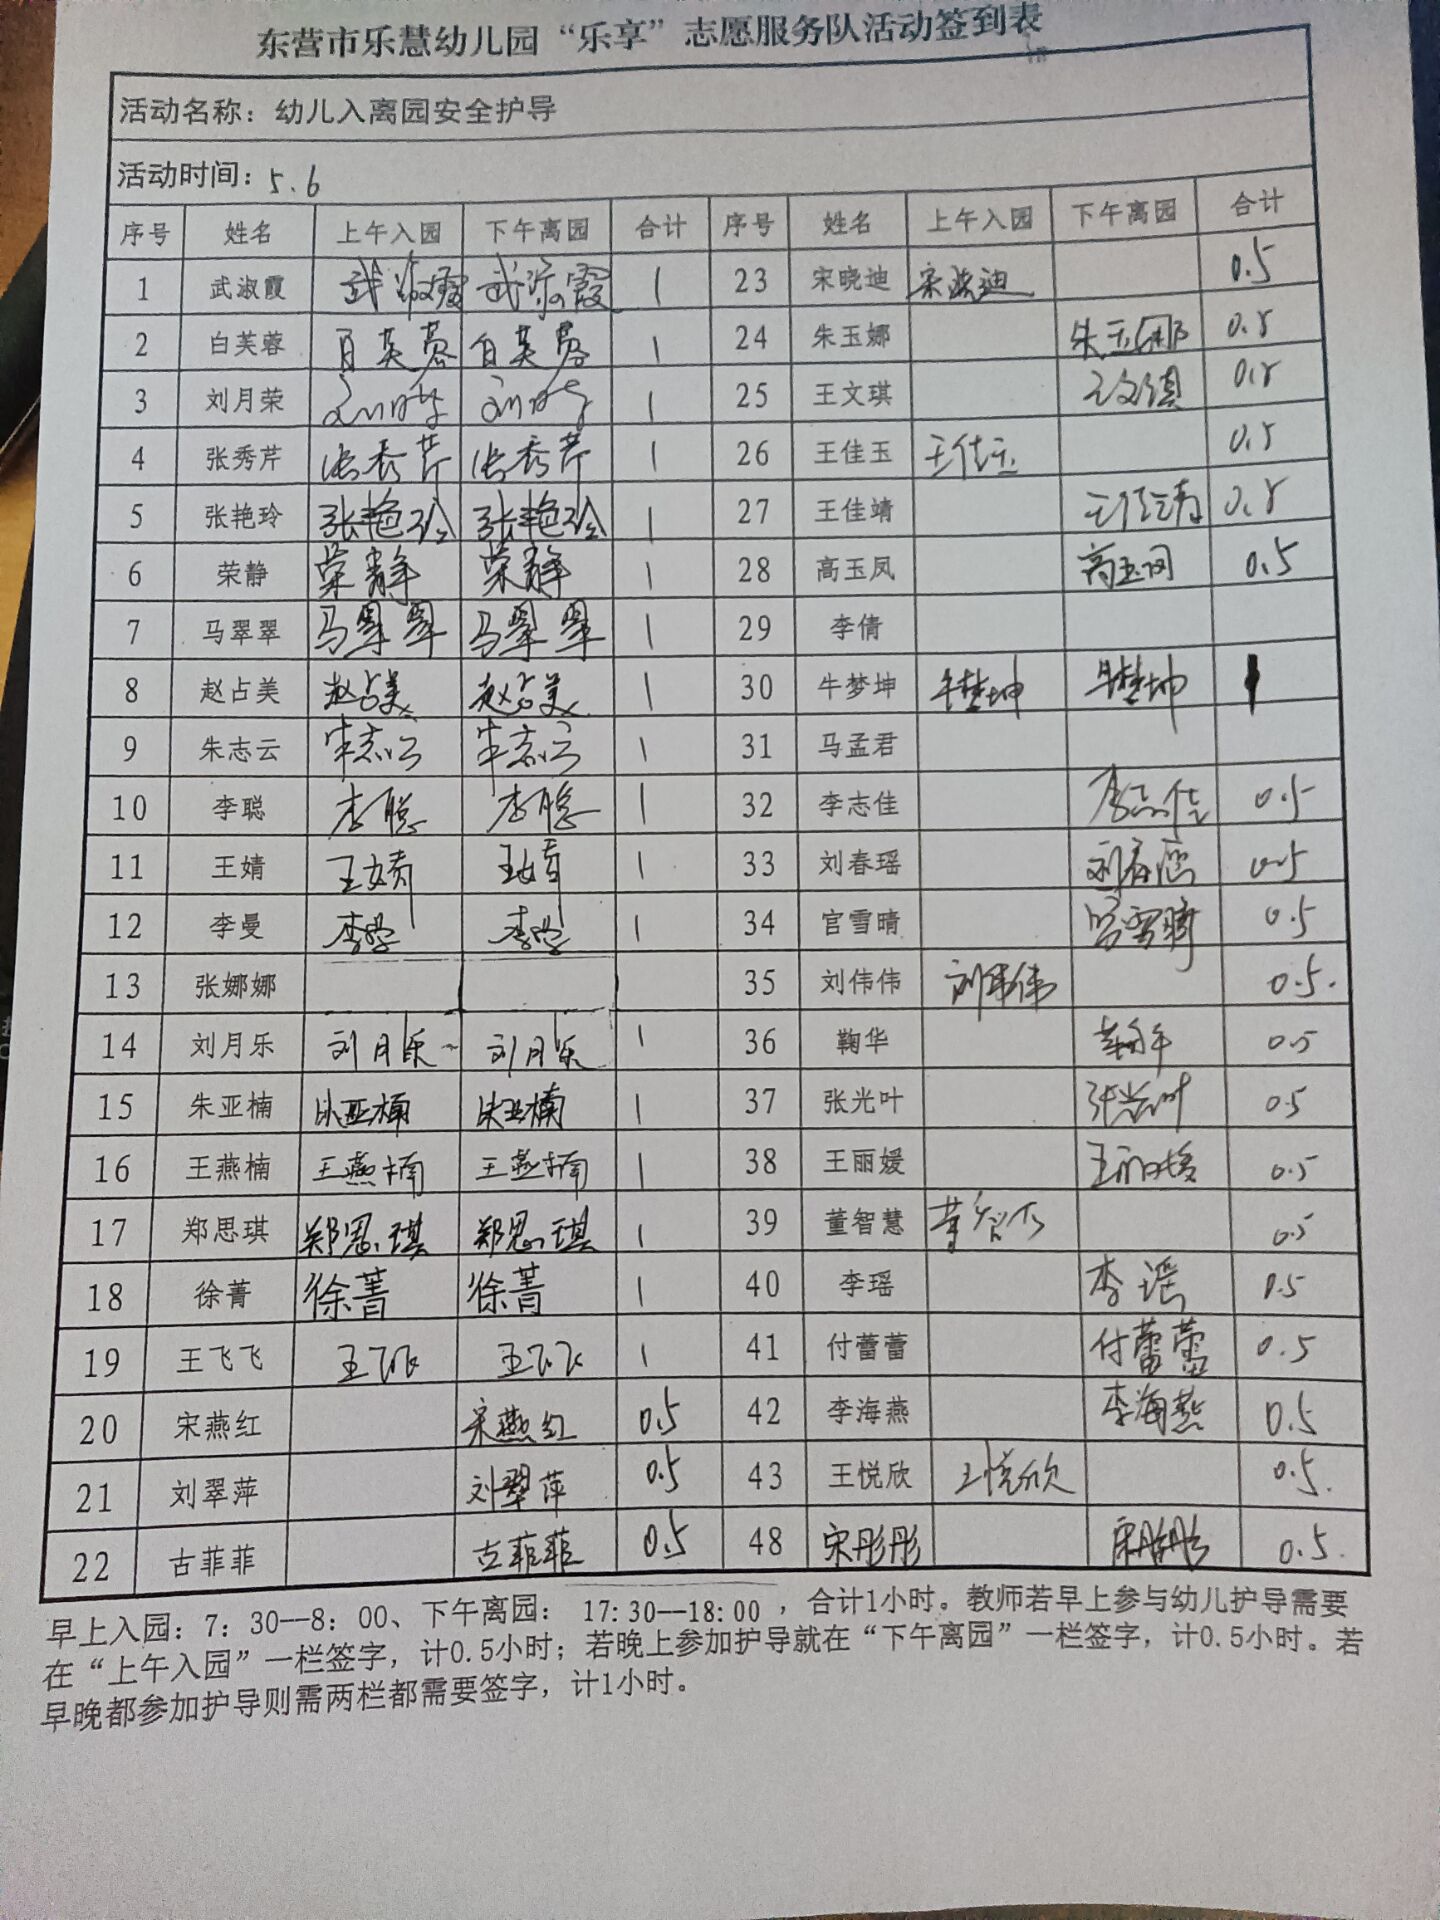 东营市乐慧幼儿园“乐享”志愿服务队活动签到表
活动名称：幼儿入离园安全护导
活动时间：5.6
序号 姓名 上午入园 下午离园 合计 序号 姓名 上午入园 下午离园 合计
1 武淑霞 武淑霞 武淑霞 1 23 宋晓迪 宋晓迪 0.5
2 白芙蓉 白芙蓉 白芙蓉 1 24 朱玉娜 朱玉娜 0.5
3 刘月荣 刘月荣 刘月荣 1 25 王文琪 王文琪 0.5
4 张秀芹 张秀芹 张秀芹 1 26 王佳玉 王佳玉 0.5
5 张艳玲 张艳玲 张艳玲 1 27 王佳靖 王佳靖 0.5
6 荣静 荣静 荣静 1 28 高玉凤 高玉凤 0.5
7 马翠翠 马翠翠 马翠翠 1 29 李倩
8 赵占美 赵占美 赵占美 1 30 牛梦坤 牛梦坤 牛梦坤 1
9 朱志云 朱志云 朱志云 1 31 马孟君
10 李聪 李聪 李聪 1 32 李志佳 李志佳 0.5
11 王婧 王婧 王婧 1 33 刘春瑶 刘春瑶 0.5
12 李曼 李曼 李曼 1 34 官雪晴 官雪晴 0.5
13 张娜娜 35 刘伟伟 刘伟伟 0.5.
14 刘月乐 刘月乐 刘月乐 1 36 鞠华 鞠华 0.5
15 朱亚楠 朱亚楠 朱亚楠 1 37 张光叶 张光叶 0.5
16 王燕楠 王燕楠 王燕楠 1 38 王丽媛 王丽媛 0.5
17 郑思琪 郑思琪 郑思琪 1 39 董智慧 董智 0.5
18 徐菁 徐菁 徐菁 1 40 李瑶 李瑶 0.5
19 王飞飞 王飞飞 王飞飞 1 41 付蕾蕾 付蕾蕾 0.5
20 宋燕红 宋燕红 0.5 42 李海燕 李海燕 0.5
21 刘翠萍 刘翠萍 0.5 43 王悦欣 王悦欣 0.5.
22 古菲菲 古菲菲 0.5 48 宋彤彤 宋彤彤 0.5.
早上入园：7：30--8：00、下午离园： 17:30--18:00 ，合计1小时。教师若早上参与幼儿护导需要
在“上午入园”一栏签字，计0.5小时；若晚上参加护导就在“下午离园”一栏签字，计0.5小时。若
早晚都参加护导则需两栏都需要签字，计1小时。